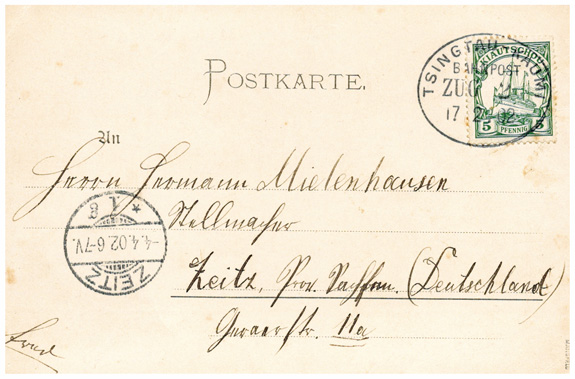 POSTKARTE.
TSINGTAU - KAUMI
BAHNPOST
ZUG
17 2 02
KIAUTSCHOU
5 PFENNIG 5
An
Herrn Hermann Mielenhausen
Stellmacher
Zeitz, Prov. Sachsen. (Deutschland)
Geraerstr. 11a
ZEITZ
-4.4.02.6-7V.
* 1 g